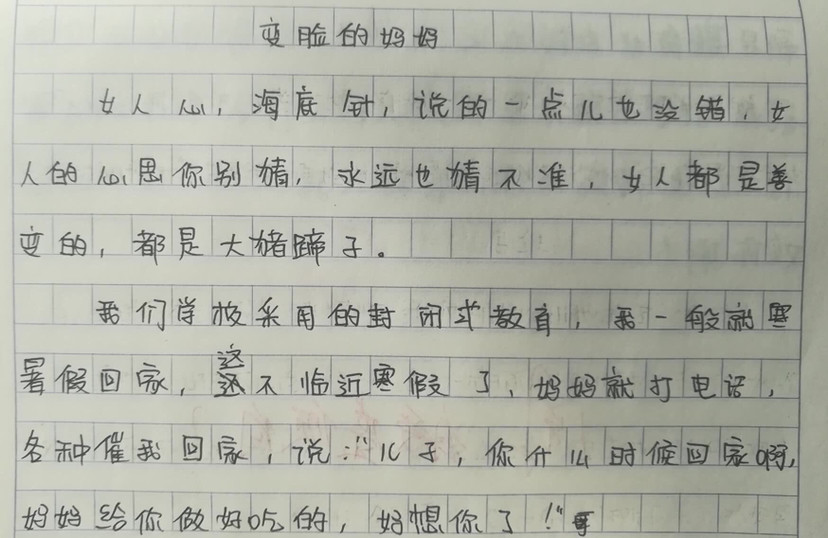 变脸的妈妈
女人心，海底针，说的一点儿也没错，女
人的心思你别猜，永远也猜不准，女人都是善
变的，都是大猪蹄子。
我们学校采用的封闭式教育，我一般就寒
暑假回家，这不临近寒假了，妈妈就打电话，
各种催我回家，说："儿子，你什么时候回家啊，
妈妈给你做好吃的，妈想你了！"